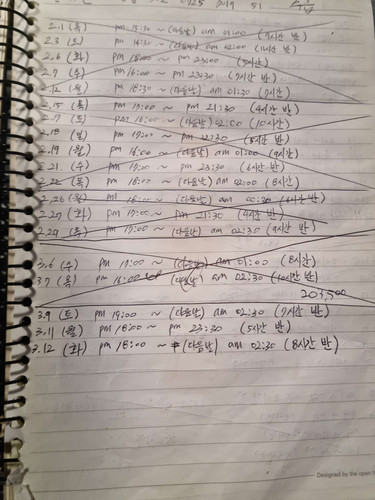 2.1 (목) pm 15:30 ~ (다음날) am 01:00
2.3 (토) pm 16:30 ~ (다음날) am 02:00
2.6 (화) pm 18:00 ~ pm 23:00 (5시간)
2.7 (수) pm 16:00 ~ pm 23:30 (7시간 반)
2.12 (월) pm 18:30 ~ (다음날) am 01:30 (7시간)
2.15 (목) pm 17:00 ~ pm 21:30 (4시간 반)
pm 16:00 (다음날) 02:00 (10시간)
2.18 (일) pm 17:00 ~ pm
2.19 (월) pm 16:00 ~ (다음날) am 01:00 (9시간)
2.21. (수) pm 17:00 ~ pm 23:30 (6시간 반)
2.22 (목) pm 18:00 ~ (다음날) am 02:00 (8시간)
2.26 (월) 18:00 ~ (다음날) am 00:30 (6시간 반)
2.27 (화) pm 17:00 ~ pm 21:30 (4시간 반)
2.29 (목) pm 17:00 ~ (다음날) am 02:30 (9시간 반)
3.6 (수) pm 17:00 ~ (다음날) am 01:00 (8시간)
3.7 (목) pm 16:00 ~ (다음날) am 02:30 (10시간 반)
3.9 (토) pm 19:00 ~ (다음날) am 02:30 (7시간 반)
3.11 (월) pm 18:00 ~ pm 23:30 (5시간 반)
3.12 (화) pm 18:00 ~ (다음날) am 02:30 (8시간 반)
Designed by the open